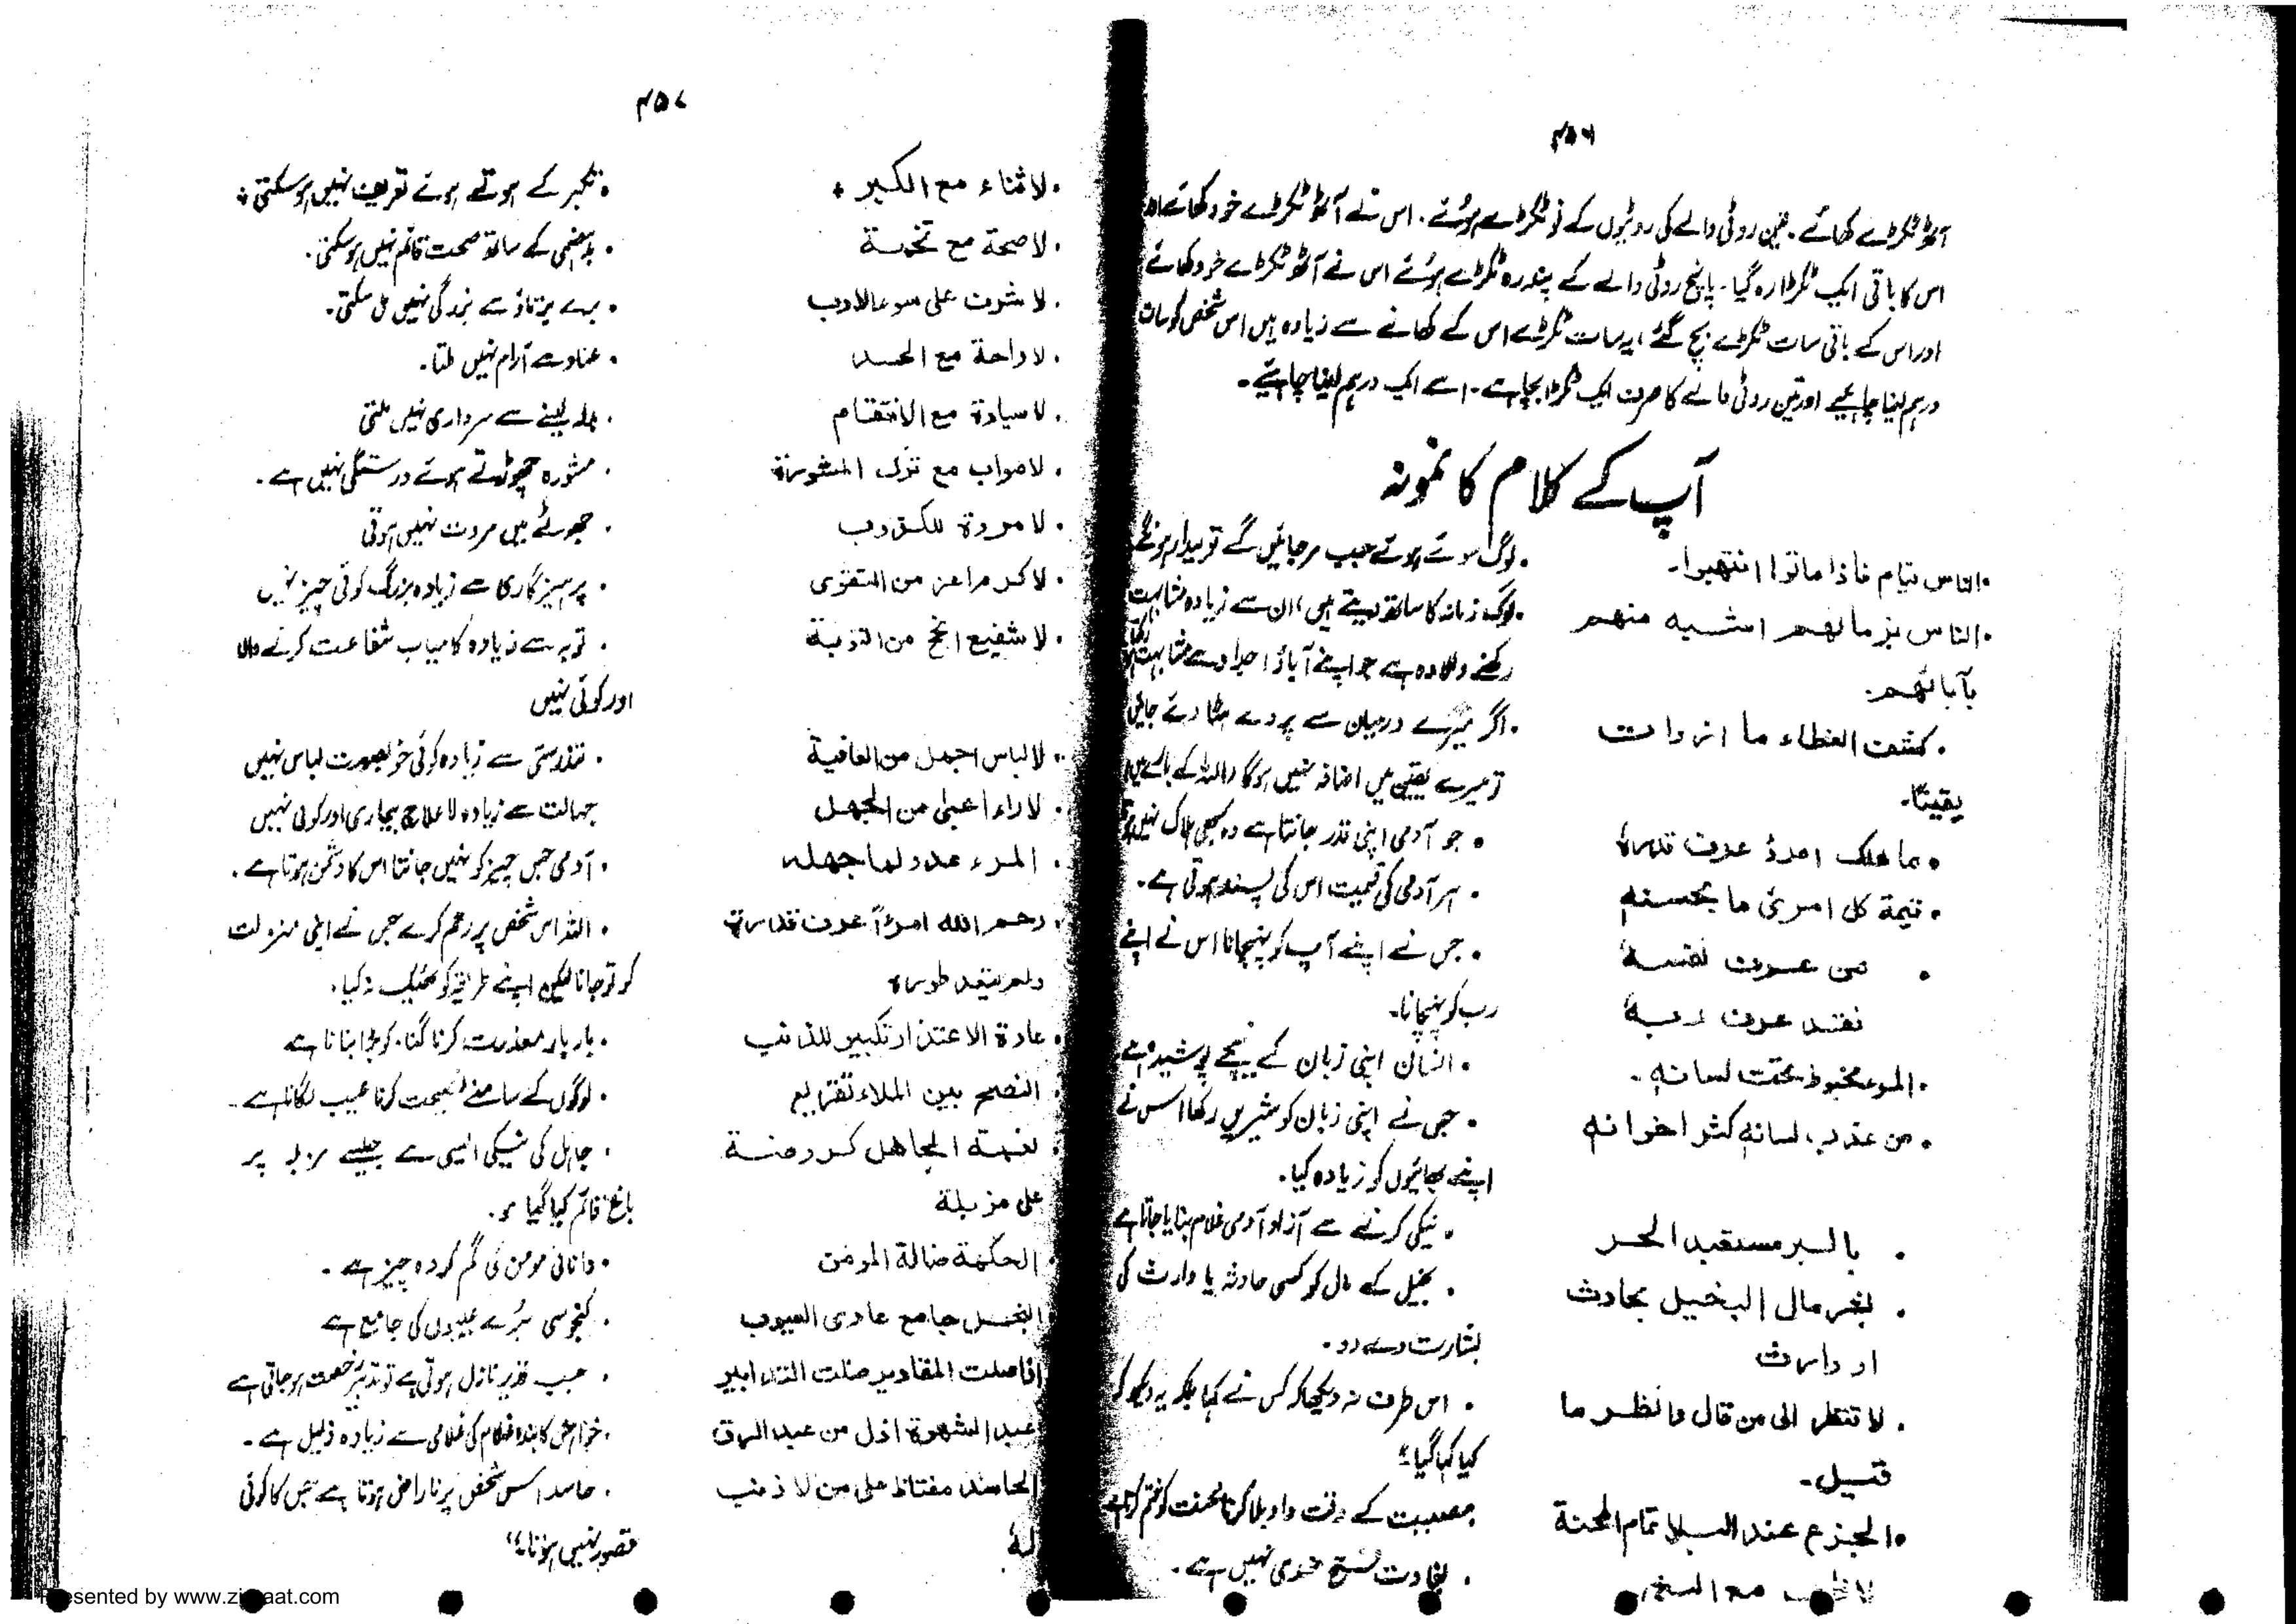 ۴۵۶
آٹھ ٹکڑے کھائے۔ تین روٹی والے کی روٹیوں کے نو ٹکڑے ہوئے۔ اس نے آٹھ ٹکڑے خود کھائے اور
اس کا باقی ایک ٹکڑا رہ گیا۔ پانچ روٹی والے کے پندرہ ٹکڑے ہوئے اس نے آٹھ ٹکڑے خود کھائے
اور اس کے باقی سات ٹکڑے بچ گئے، یہ سات ٹکڑے اس کے کھانے سے زیادہ ہیں اس شخص کو سات
درہم لینا چاہیے اور تین روٹی والے کا صرف ایک ٹکڑا بچا ہے۔ اسے ایک درہم لینا چاہیے۔
آپ کے کلام کا نمونہ
• الناس نیام فاذا ماتوا انتھبوا۔
• لوگ سوئے ہوئے جب مرجائیں گے تو بیدار ہونگے
• الناس بزمانھم اشبہ منھم
• لوگ زمانہ کا ساتھ دیتے ہیں، ان سے زیادہ مشابہت
بآبائھم۔
رکھنے والا وہ ہے جو اپنے آباؤ اجداد سے مشابہت
• کشف الغطاء ما ازدات
• اگر میرے درمیان سے پردے ہٹا دئے جائیں
یقینًا۔
تو میرے یقین میں اضافہ نہیں ہوگا
• ما ھلک امرؤ عرف قدرہٗ
• جو آدمی اپنی قدر جانتا ہے وہ کبھی ہلاک نہیں ہوتا
• قیمۃ کل امریٔ ما یحسنہ
• ہر آدمی کی قیمت اس کی پسند ہوتی ہے۔
• من عرف نفسہٗ
• جس نے اپنے آپ کو پہچانا اس نے اپنے
فقد عرف ربہٗ
رب کو پہچانا۔
• المرء مخبوط تحت لسانہٖ۔
• انسان اپنی زبان کے نیچے پوشیدہ ہے
• من عذب لسانہٖ کثر اخوانہٖ
• جس نے اپنی زبان کو شیریں رکھا اس نے
اپنے بھائیوں کو زیادہ کیا۔
• بالبر مستقید الحر
• نیکی کرنے سے آزاد آدمی غلام بنایا جاتا ہے
• بشر مال البخیل بحادث
• بخیل کے مال کو کسی حادثہ یا وارث کی
او وارث
بشارت دے دو۔
• لا تنظر الی من قال وانظر ما
• اس طرف نہ دیکھا کہ کس نے کہا بلکہ یہ دیکھو کہ
قیل۔
کیا کہا گیا ؟
• الجزع عند البلا تمام المحنۃ
مصیبت کے وقت واویلا کرنا محنت کو ختم کرتا ہے
مع البغی
۴۵۷
• لا ثناء مع الکبر
• تکبر کے ہوتے ہوئے تعریف نہیں ہو سکتی
• لا صحۃ مع تخمۃ
• بدہضمی کے ساتھ صحت قائم نہیں ہو سکتی۔
• لا شرف علی سوء الادب
• برے برتاؤ سے بزرگی نہیں مل سکتی۔
• لا راحۃ مع الحسد
• عناد سے آرام نہیں ملتا۔
• لا سیادۃ مع الانتقام
• بدلہ لینے سے سرداری نہیں ملتی
• لا صواب مع ترک المشورۃ
• مشورہ چھوڑتے ہوئے درستگی نہیں ہے۔
• لا مروۃ للکذوب
• جھوٹے میں مروت نہیں ہوتی
• لا کرم اعز من التقوی
• پرہیزگاری سے زیادہ بزرگ کوئی چیز نہیں
• لا شفیع انجح من التوبۃ
• توبہ سے زیادہ کامیاب شفاعت کرنے والا
اور کوئی نہیں
• لا لباس اجمل من العافیۃ
• تندرستی سے زیادہ کوئی خوبصورت لباس نہیں
• لا داء اعیٰی من الجھل
جہالت سے زیادہ لا علاج بیماری اور کوئی نہیں
• المرء عدو لما جھلہ
• آدمی جس چیز کو نہیں جانتا اس کا دشمن ہوتا ہے۔
• رحم اللہ امرؤاً عرف قدرہٗ
• اللہ اس شخص پر رحم کرے جس نے اپنی منزلت
ولم یتعد طورہٗ
کو تو جانا لیکن اپنے طریقہ کو نہ کیا۔
• عادۃ الاعتذار تکبیر للذنب
• بار بار معذرت کرنا گناہ کو بڑا بنانا ہے
النصح بین الملاء تقریع
• لوگوں کے سامنے نصیحت کرنا عیب لگانا ہے۔
نعمۃ الجاھل کروضۃ
• جاہل کی نیکی ایسی ہے جیسے مزبلہ پر
علی مزبلۃ
باغ قائم کیا گیا ہو۔
الحکمۃ ضالۃ المومن
• دانائی مومن کی گم کردہ چیز ہے۔
البخل جامع عاوی العیوب
• کنجوسی بُرے عیبوں کی جامع ہے
اذا حلت المقادیر ضلت التدابیر
• جب تقدیر نازل ہوتی ہے تو تدبیر رخصت ہو جاتی ہے
عبد الشھوۃ اذل من عبد الرق
• خواہش کا بندہ غلام کی غلامی سے زیادہ ذلیل ہے۔
الحاسد مغتاظ علی من لا ذنب
• حاسد اس شخص پر ناراض ہوتا ہے جس کا کوئی
لہٗ
قصور نہیں ہوتا۔"
Presented by www.ziaraat.com